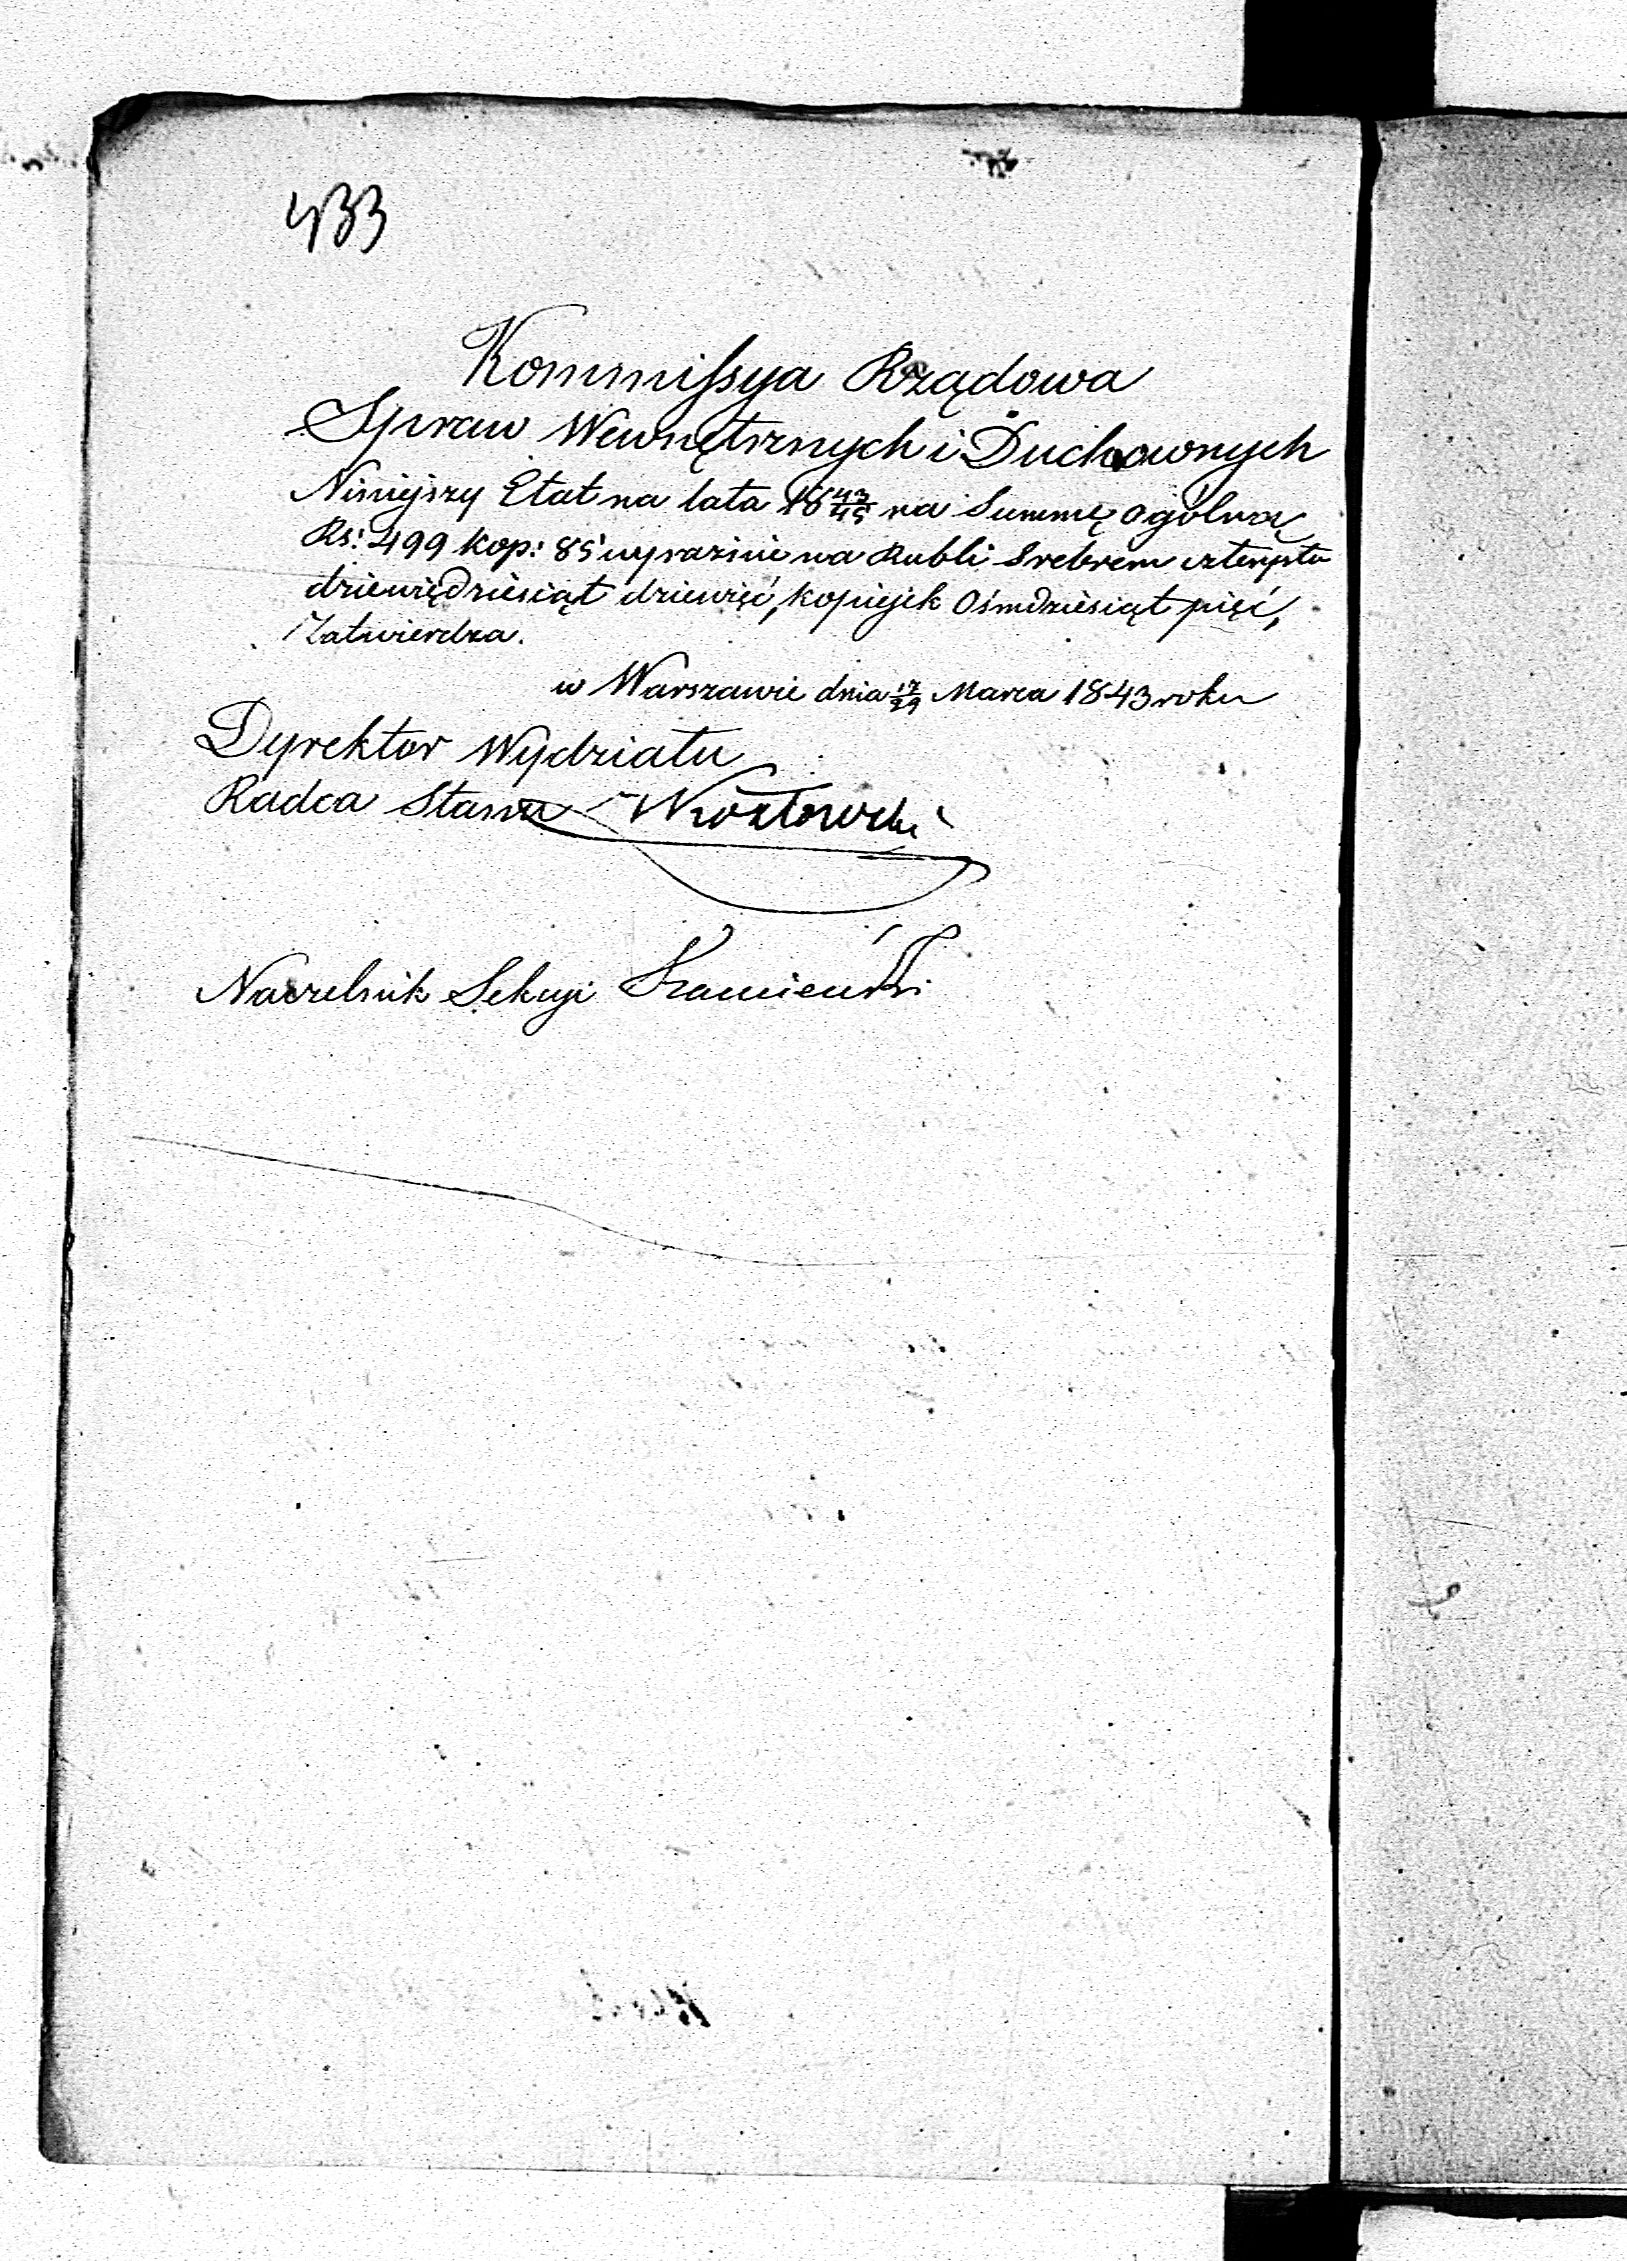 433
Kommissya Rządowa
Spraw Wewnętrznych i Duchownych
Niniejszy Etat na lata 18 43/45 na Summę ogólną
Rs: 499 kop: 85 wyraźnie na Rubli Srebrem czterysta
dziewięćdziesiąt dziewięć, kopiejek Ośmdziesiąt pięć,
Zatwierdza.
w Warszawie dnia 17/29 Marca 1843 roku
Dyrektor Wydziału
Radca Stanu Kozłowski
Naczelnik Sekcyi